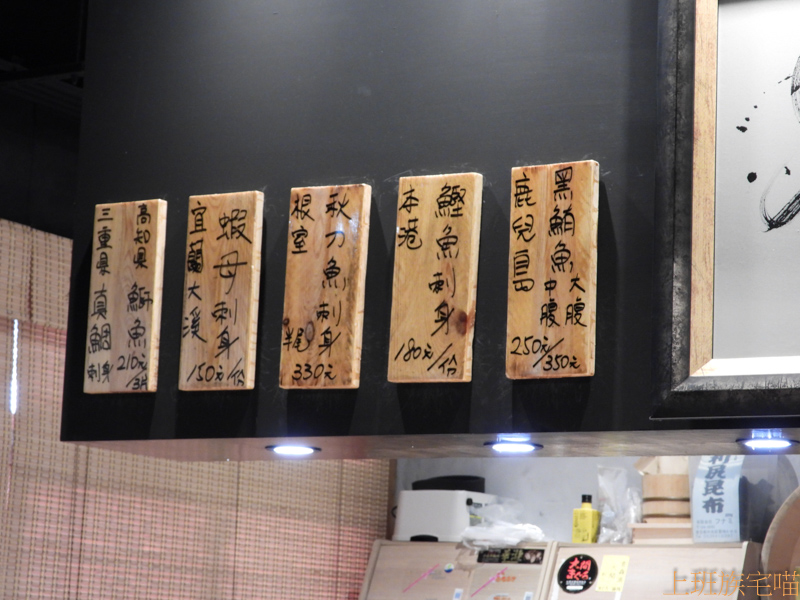 黑鮪魚大腹
中腹
鹿兒島
250元/350元
鰹魚刺身
本港
180元/份
秋刀魚刺身
根室
半尾
330元
蝦母刺身
宜蘭大溪
150元/份
高知県 鰤魚
三重県 真鯛
刺身
210元/3片
利尻昆布
大間
まぐろ
上班族宅喵